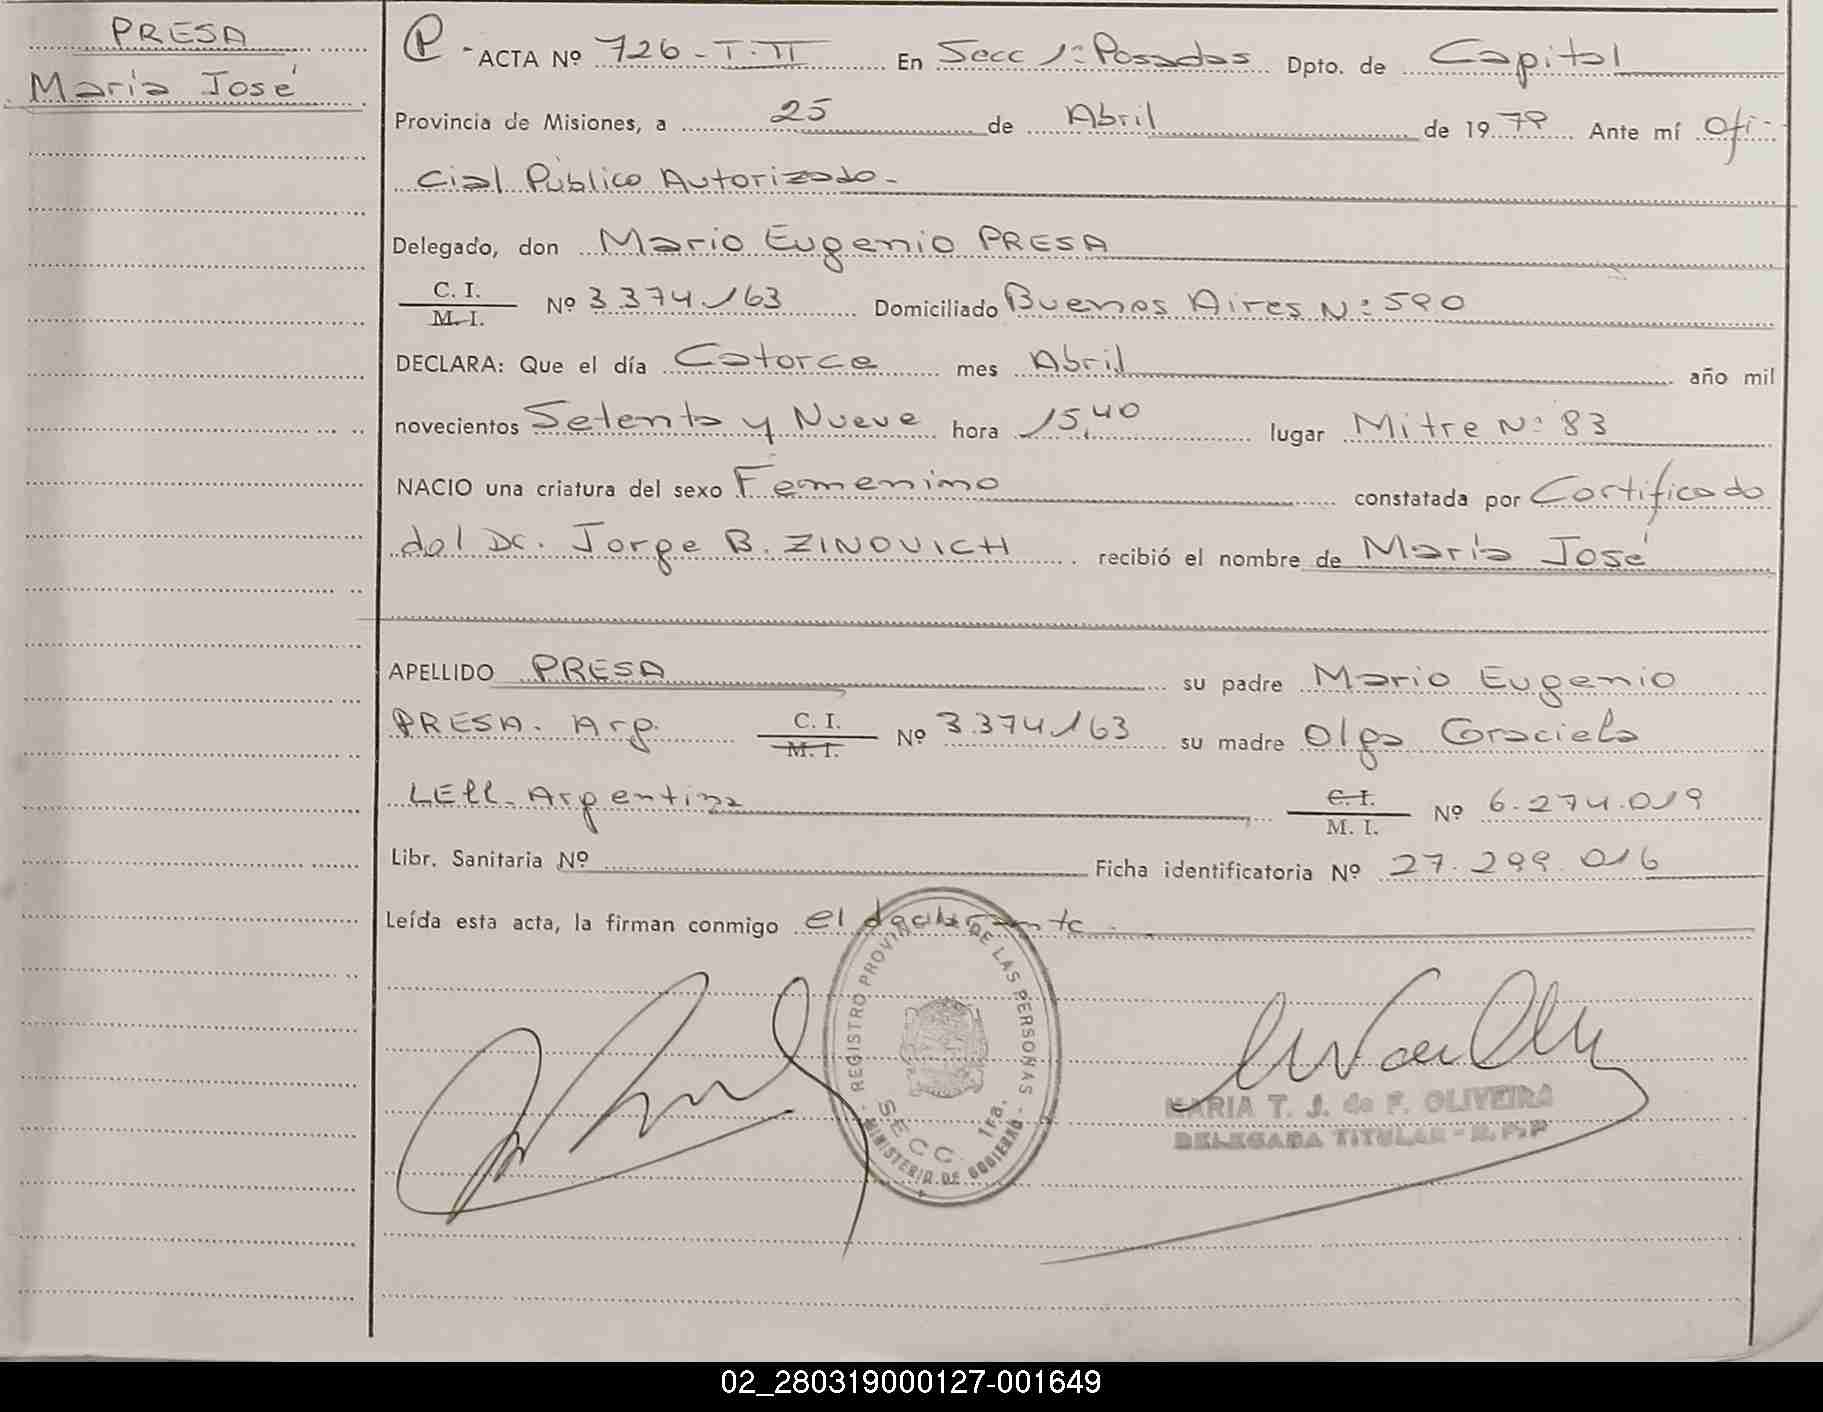 PRESA
María José
P - ACTA Nº 726 - T. II En Secc 1ª Posadas Dpto. de Capital
Provincia de Misiones, a 25 de Abril de 1979 Ante mí Ofi-
cial Público Autorizado.-
Delegado, don Mario Eugenio PRESA
C. I.
M. I. Nº 3.374.163 Domiciliado Buenos Aires Nº 590
DECLARA: Que el día Catorce mes Abril año mil
novecientos Setenta y Nueve hora 15,40 lugar Mitre Nº 83
NACIO una criatura del sexo Femenino constatada por Certificado
del Dr. Jorge B. ZINOVICH recibió el nombre de María José
APELLIDO PRESA su padre Mario Eugenio
PRESA. Arg. C. I. M. I. Nº 3.374.163 su madre Olga Graciela
LEll. Argentina C. I. M. I. Nº 6.274.019
Libr. Sanitaria Nº Ficha identificatoria Nº 27.299.016
Leída esta acta, la firman conmigo el declarante.
REGISTRO PROVINCIAL DE LAS PERSONAS
SECC. 1ra.
MINISTERIO DE GOBIERNO
MARIA T. J. de F. OLIVEIRA
DELEGADA TITULAR - R. P. P
02_280319000127-001649